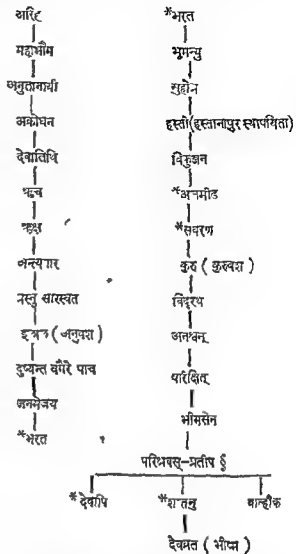 अरिह
महाभौम
अनुतानायी
अक्रोधन
देवातिथि
ऋच
ऋक्ष
अन्त्यगार
त्रस्नु सारस्वत
इलिल (अनुवश)
दुष्यन्त वगैरे पाच
जनमेजय
*भरत
*भरत
भूमन्यु
सुहोत्र
हस्ती (हस्तानापुर स्थापयिता)
विकुञ्जन
*अजमीड
*सवरण
कुरु (कुरुवश)
विदूरथ
अनश्वन्
परिक्षित्
भीमसेन
परिश्रवस्-प्रतीप §
*देवापि *शन्तनु बाल्हीक
देवव्रत (भीष्म)